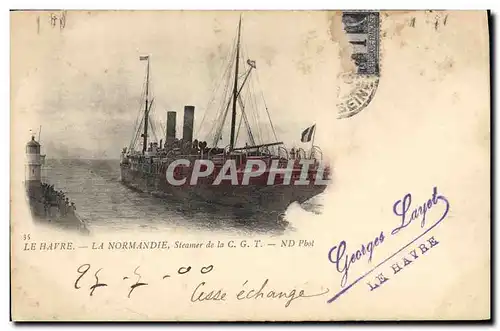 SEINE
CPARPHIL
35
LE HAVRE. — LA NORMANDIE, Steamer de la C. G. T. — ND Phot
25-7-00
Cesse échange
Georges Layet
LE HAVRE